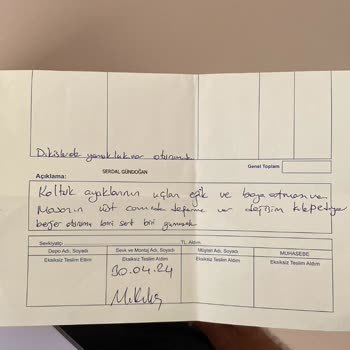 Dikişlerde yamukluk var oturumda
Genel Toplam
Açıklama: SERDAL GÜNDOĞAN
Koltuk ayaklarının uçları eğik ve boya atması var
Masanın üst camında deforme var değişim talep ediyor
berjer oturumu biri sert biri yumuşak
Sevkiyatçı TL Aldım
Depo Adı, Soyadı Sevk ve Montaj Adı, Soyadı Müşteri Adı, Soyadı MUHASEBE
Eksiksiz Teslim Ettim Eksiksiz Teslim Aldım Eksiksiz Teslim Aldım Eksiksiz Teslim Aldım
30.04.24